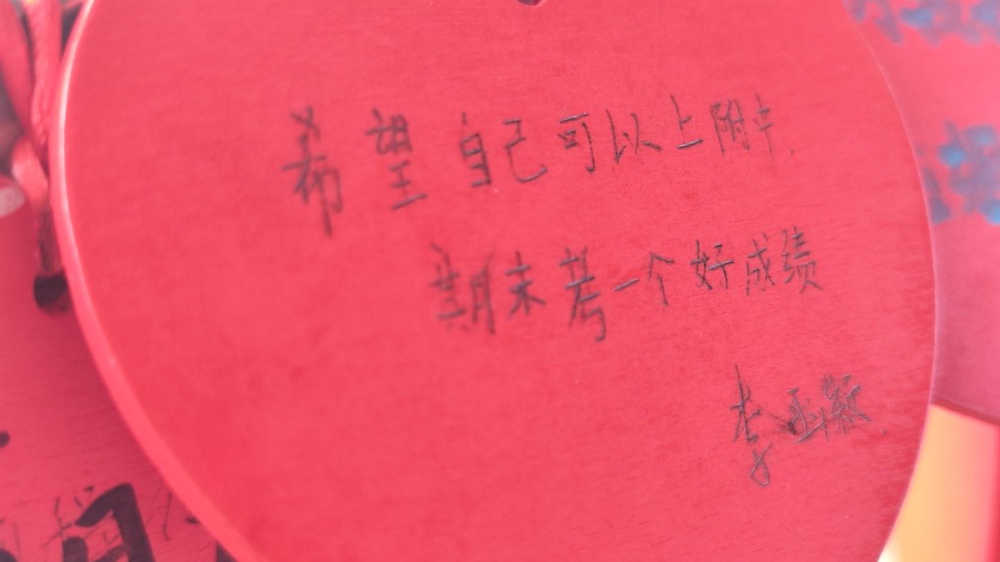 希望自己可以上附中.
期末考一个好成绩
李亚颖
月